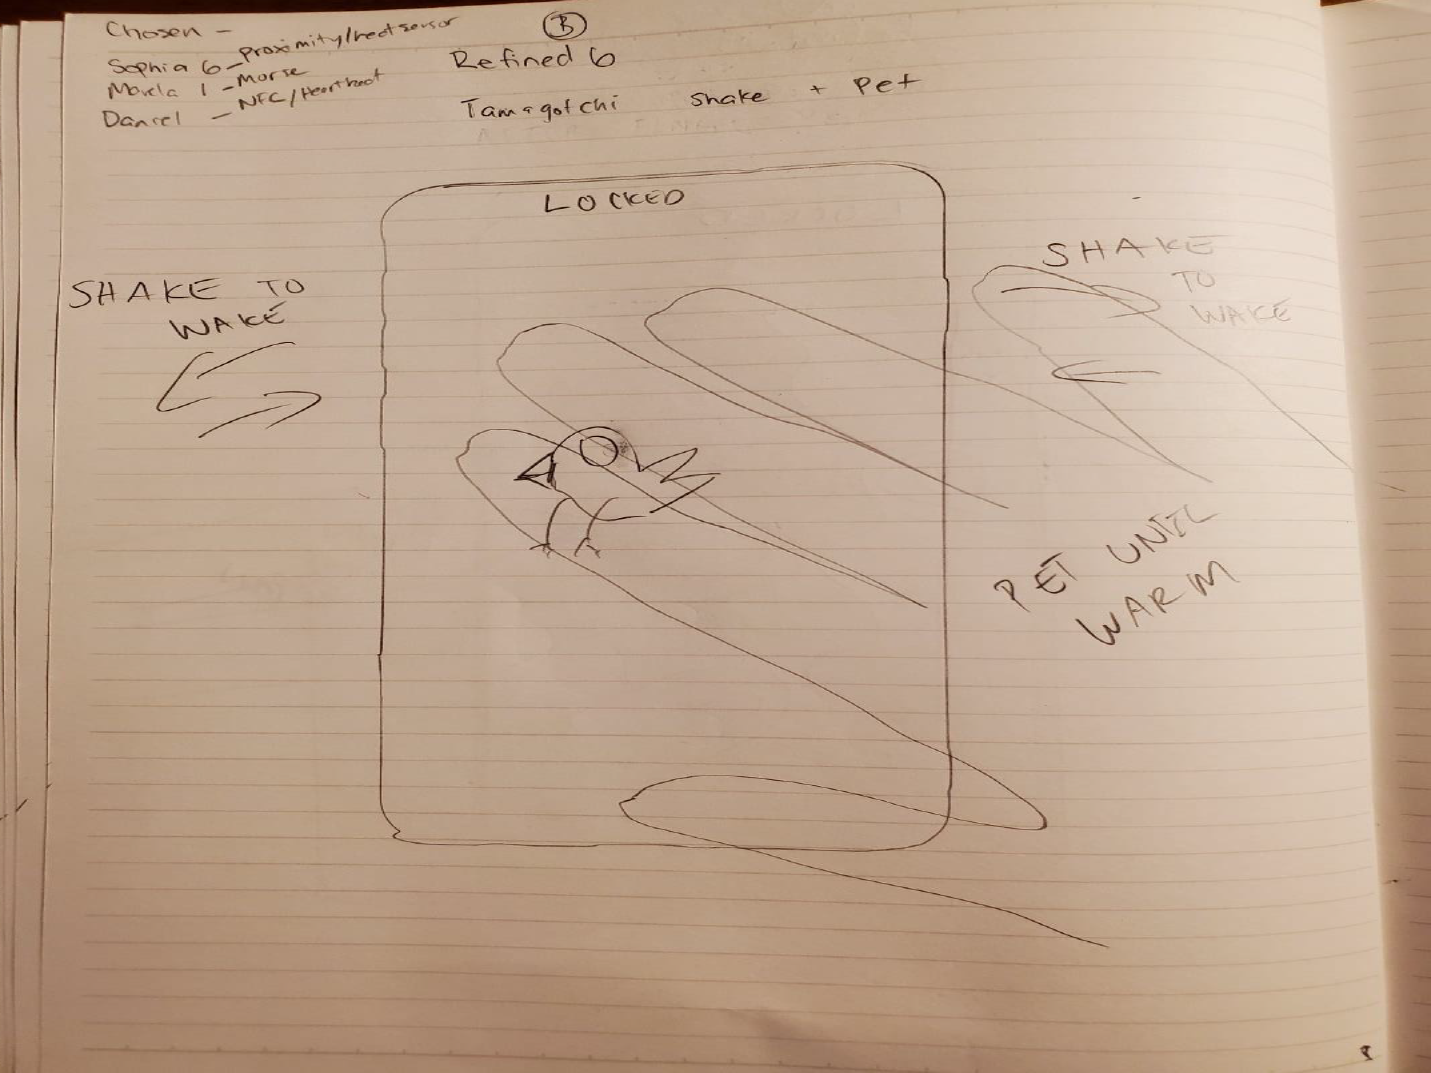 Chosen -
Sophia 6 - proximity/heat sensor
Marcela 1 - Morse
Daniel - NFC/Heartbeat
B
Refined 6
Tamagotchi shake + Pet
LOCKED
SHAKE TO
WAKE
SHAKE
TO
WAKE
PET UNTIL
WARM
8